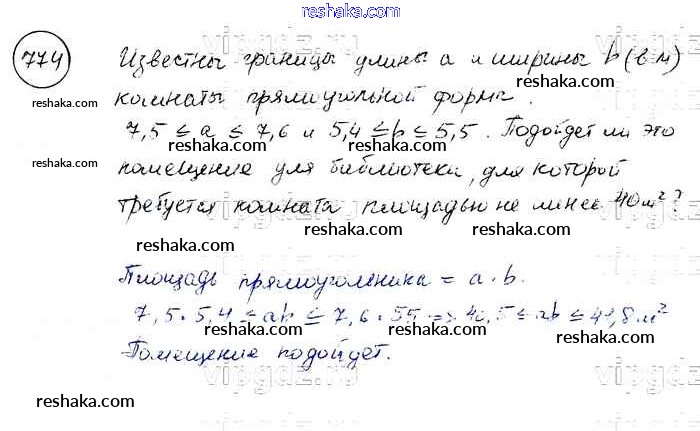 reshaka.com
774
Известны границы длины a и ширины b (в м)
комнаты прямоугольной формы.
7,5 ≤ a ≤ 7,6 и 5,4 ≤ b ≤ 5,5. Подойдет ли это
помещение для библиотеки, для которой
требуется комната площадью не менее 40 м²?
Площадь прямоугольника = a · b.
7,5 · 5,4 ≤ ab ≤ 7,6 · 55 => 40,5 ≤ ab ≤ 41,8 м²
Помещение подойдет.
reshaka.com
reshaka.com
reshaka.com
reshaka.com
reshaka.com
reshaka.com
reshaka.com
reshaka.com
reshaka.com
reshaka.com